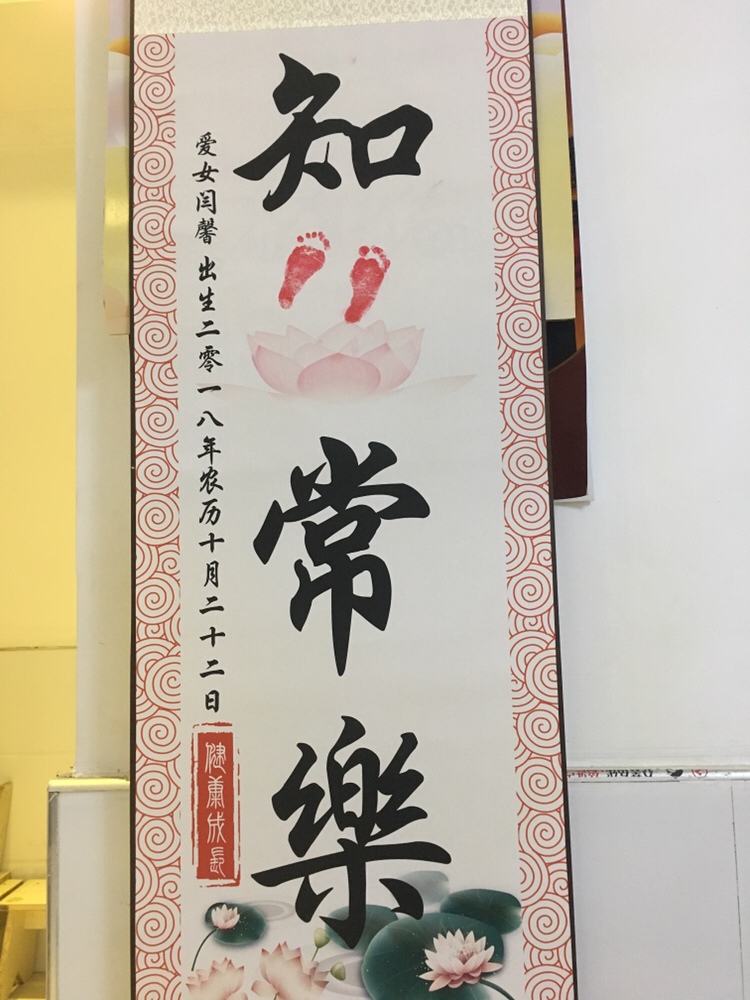 知
常
樂
爱女闫馨 出生二零一八年农历十月二十二日
健康成長